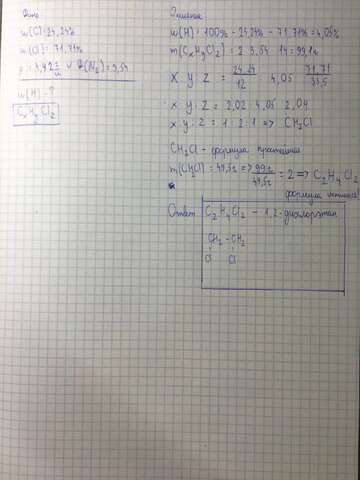 Дано
w(C)=24,24%
w(Cl)=71,71%
D(N₂)=3,54
w(H) - ?
CₓHᵧCl₂
Решение
w(H) = 100% - 24,24% - 71,71% = 4,05%
m(CₓHᵧCl₂) = 2 · 3,54 · 14 = 99,12
x y z = 24,24/12 4,05 71,71/35,5
x y z = 2,02 4,05 2,04
x y : z = 1 : 2 : 1 => CH₂Cl
CH₂Cl - формула простейшая
m(CH₂Cl) = 49,5г => 99г/49,5г = 2 => C₂H₄Cl₂
формула истинная
Ответ C₂H₄Cl₂ - 1,2-дихлорэтан
CH₂ - CH₂
Cl Cl